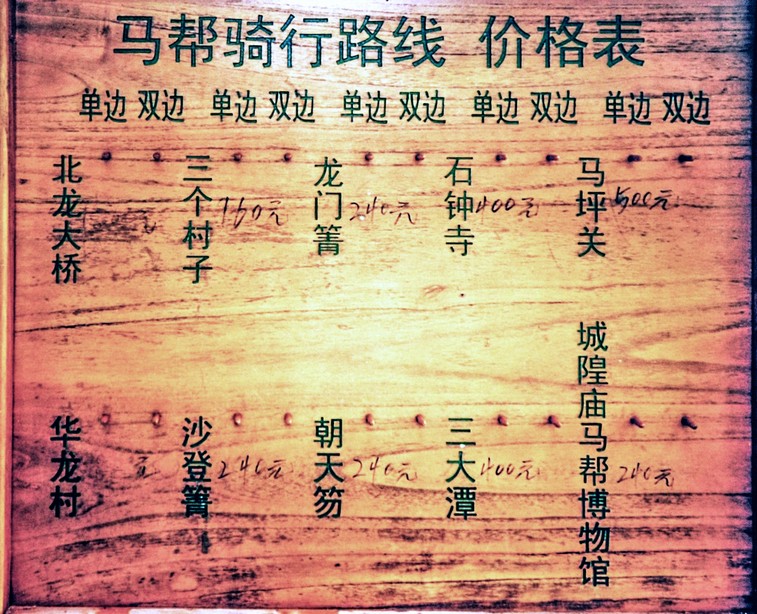 马帮骑行路线 价格表
单边 双边 单边 双边 单边 双边 单边 双边 单边 双边
北龙大桥
三个村子 160元
龙门箐 240元
石钟寺 400元
马坪关 500元
华龙村 元
沙登箐 240元
朝天笏 240元
三大潭 400元
城隍庙马帮博物馆 240元